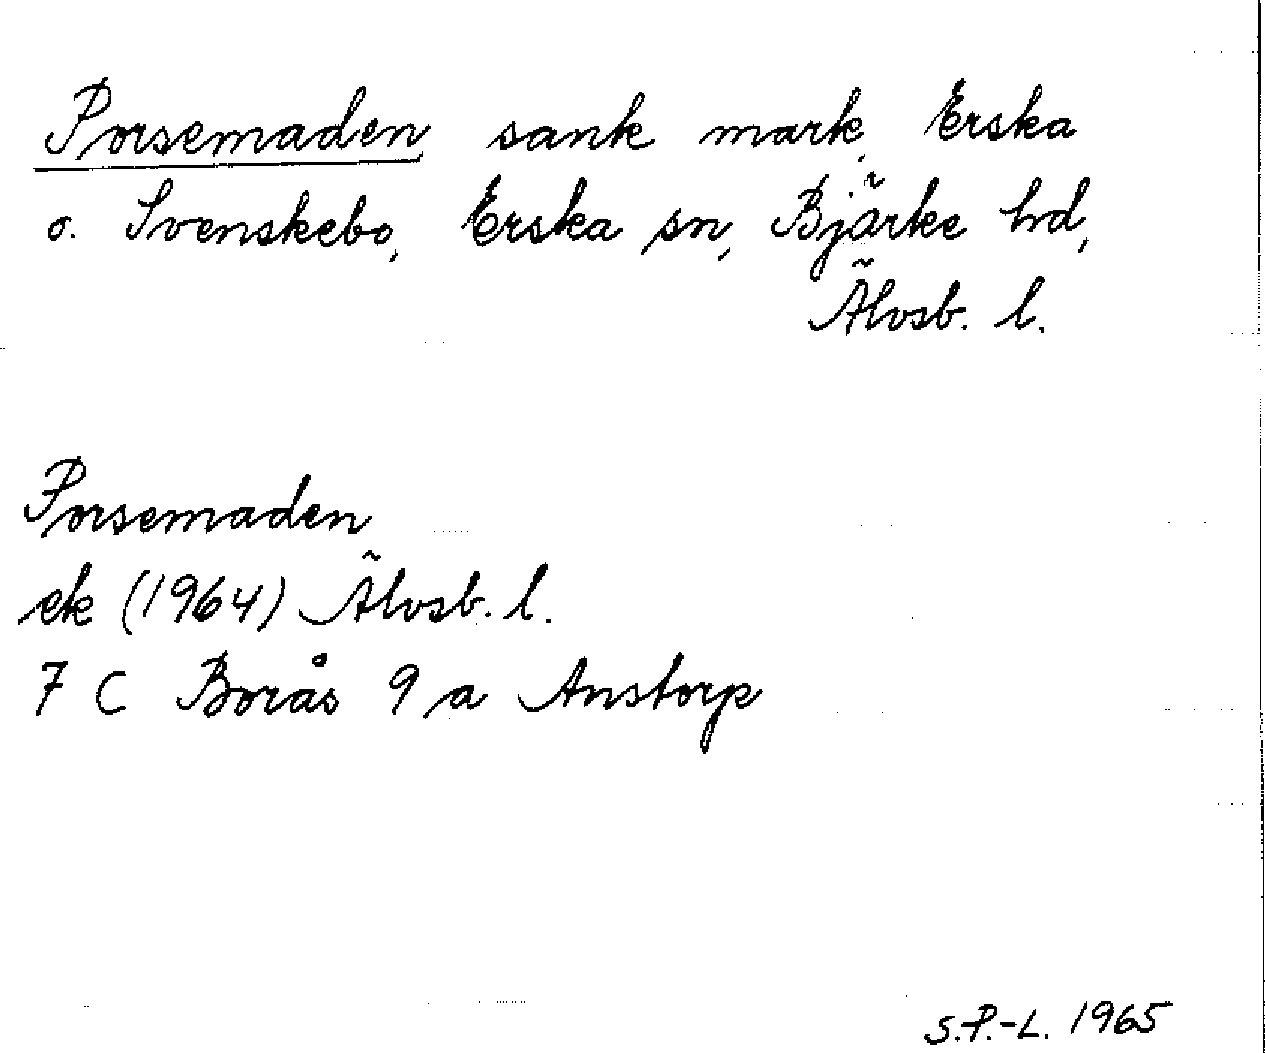 Porsemaden, sank mark, Erska
o. Svenskebo, Erska sn, Bjärke hd,
Älvsb. l.
Porsemaden
ek (1964) Älvsb. l.
7 C Borås 9 a Anstorp
S.P.-L. 1965